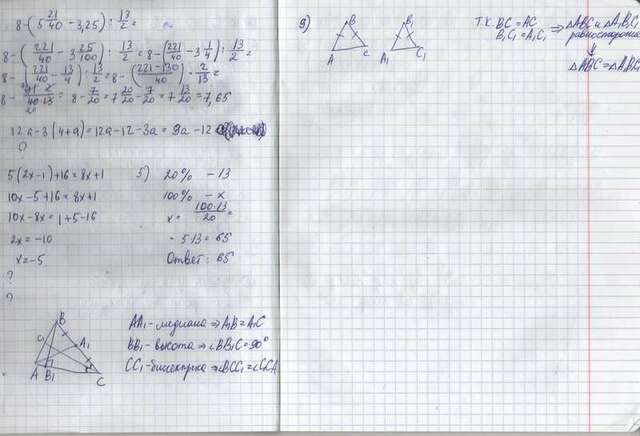 8-(5 21/40 - 3,25) : 13/2 =
8-(221/40 - 3 25/100) : 13/2 = 8-(221/40 - 3 1/4) : 13/2 =
8-(221/40 - 13/4) : 13/2 = 8-(221-130/40) · 2/13 =
8- 91·2/40·13 = 8- 7/20 = 7 20/20 - 7/20 = 7 13/20 = 7,65
12a-3(4+a)=12a-12-3a=9a-12
?
5(2x-1)+16=8x+1
10x-5+16=8x+1
10x-8x=1+5-16
2x=-10
x=-5
?
?
5) 20% - 13
100% - x
x = 100·13/20 =
= 5·13 = 65
Ответ: 65
B
C1
A1
A B1
C
AA1-медиана ⇒ A1B=A1C
BB1-высота ⇒ ∠BB1C=90°
CC1-биссектриса ⇒ ∠BCC1=∠C1CA
9)
B
A C
B1
A1 C1
Т.К. BC=AC
B1C1=A1C1
⇒ △ABC и △A1B1C1
равносторонние
⇓
△ABC=△A1B1C1